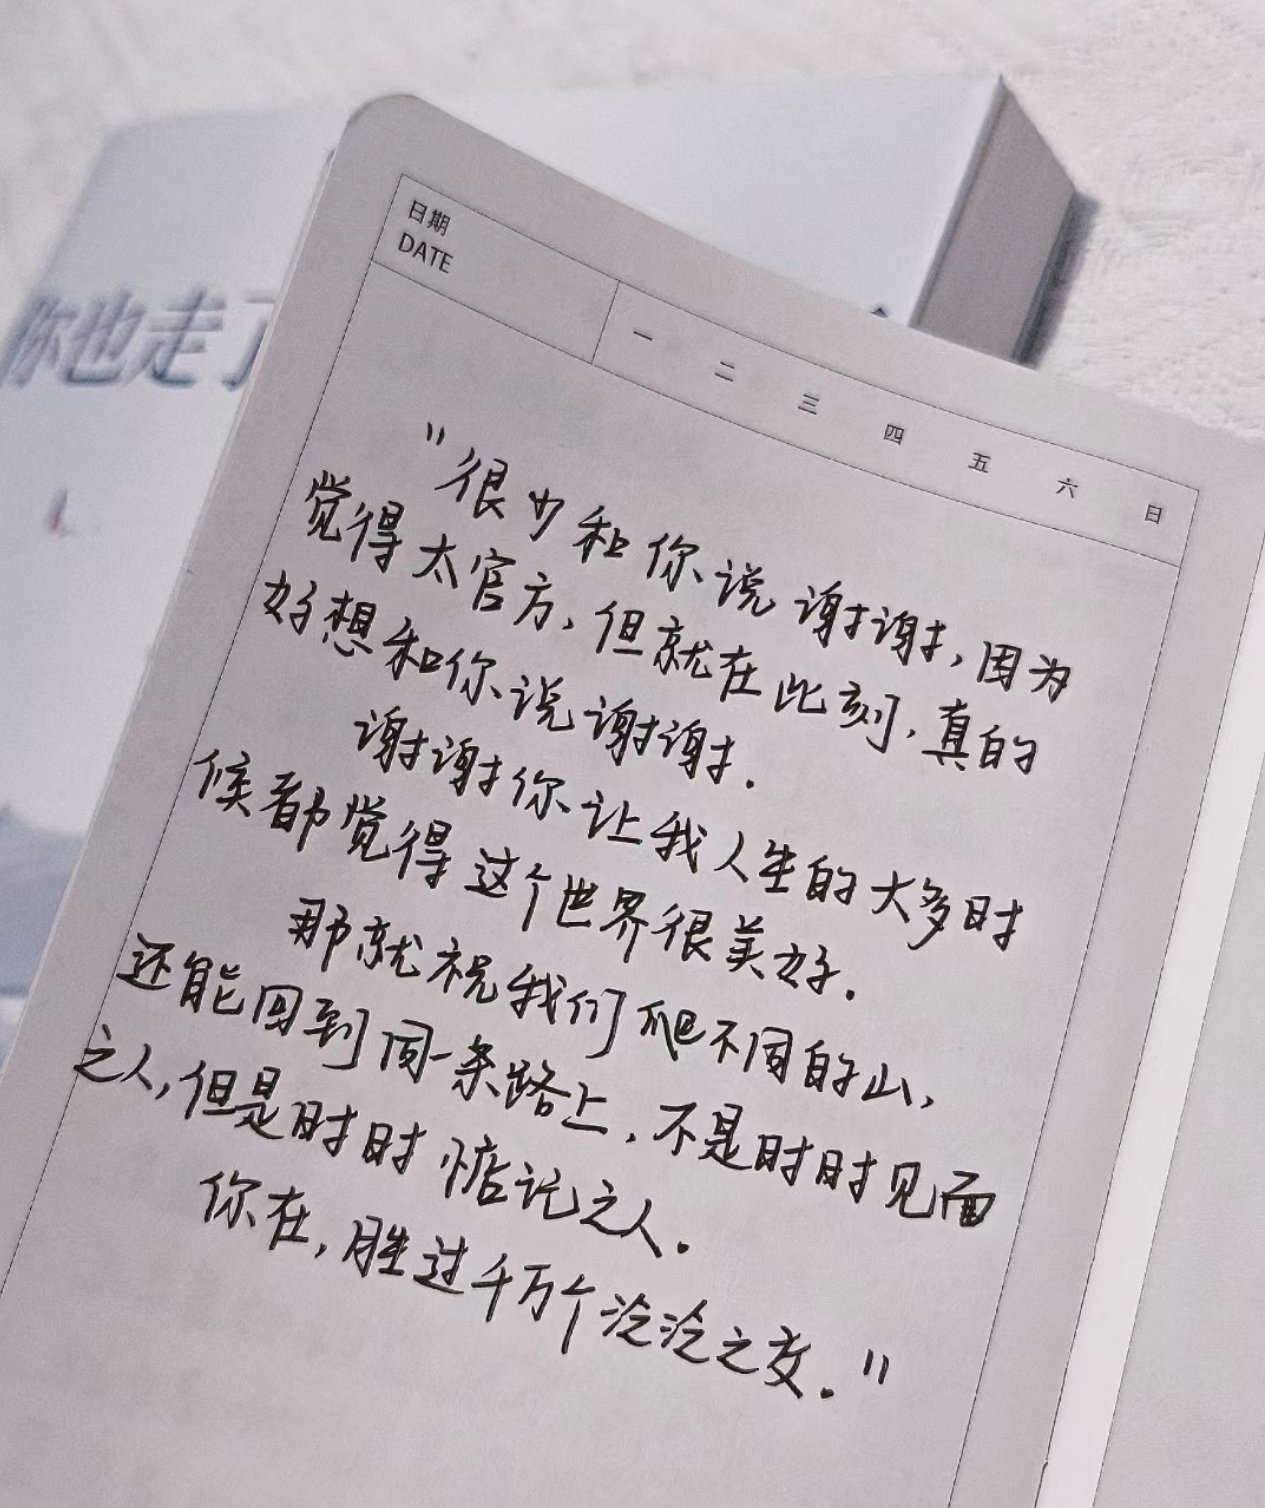 你也走了
日期
DATE
一 二 三 四 五 六 日
"很少和你说谢谢,因为
觉得太官方,但就在此刻,真的
好想和你说谢谢.
谢谢你让我人生的大多时
候都觉得这个世界很美好.
那就祝我们爬不同的山,
还能回到同一条路上,不是时时见面
之人,但是时时惦记之人.
你在,胜过千万个泛泛之交."